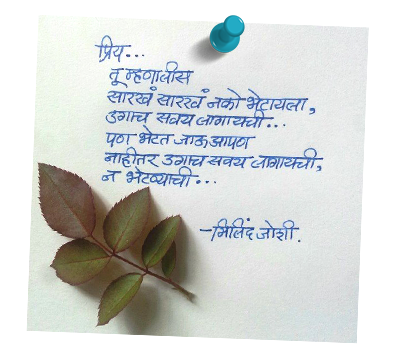 प्रिय...
तू म्हणालीस
सारखं सारखं नको भेटायला,
उगाच सवय लागायची...
पण भेटत जाऊ आपण
नाहीतर उगाच सवय लागायची,
न भेटण्याची...
-मिलिंद जोशी.